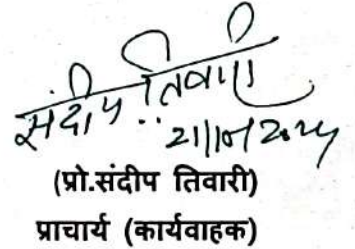 संदीप तिवारी
21/10/2024
(प्रो.संदीप तिवारी)
प्राचार्य (कार्यवाहक)